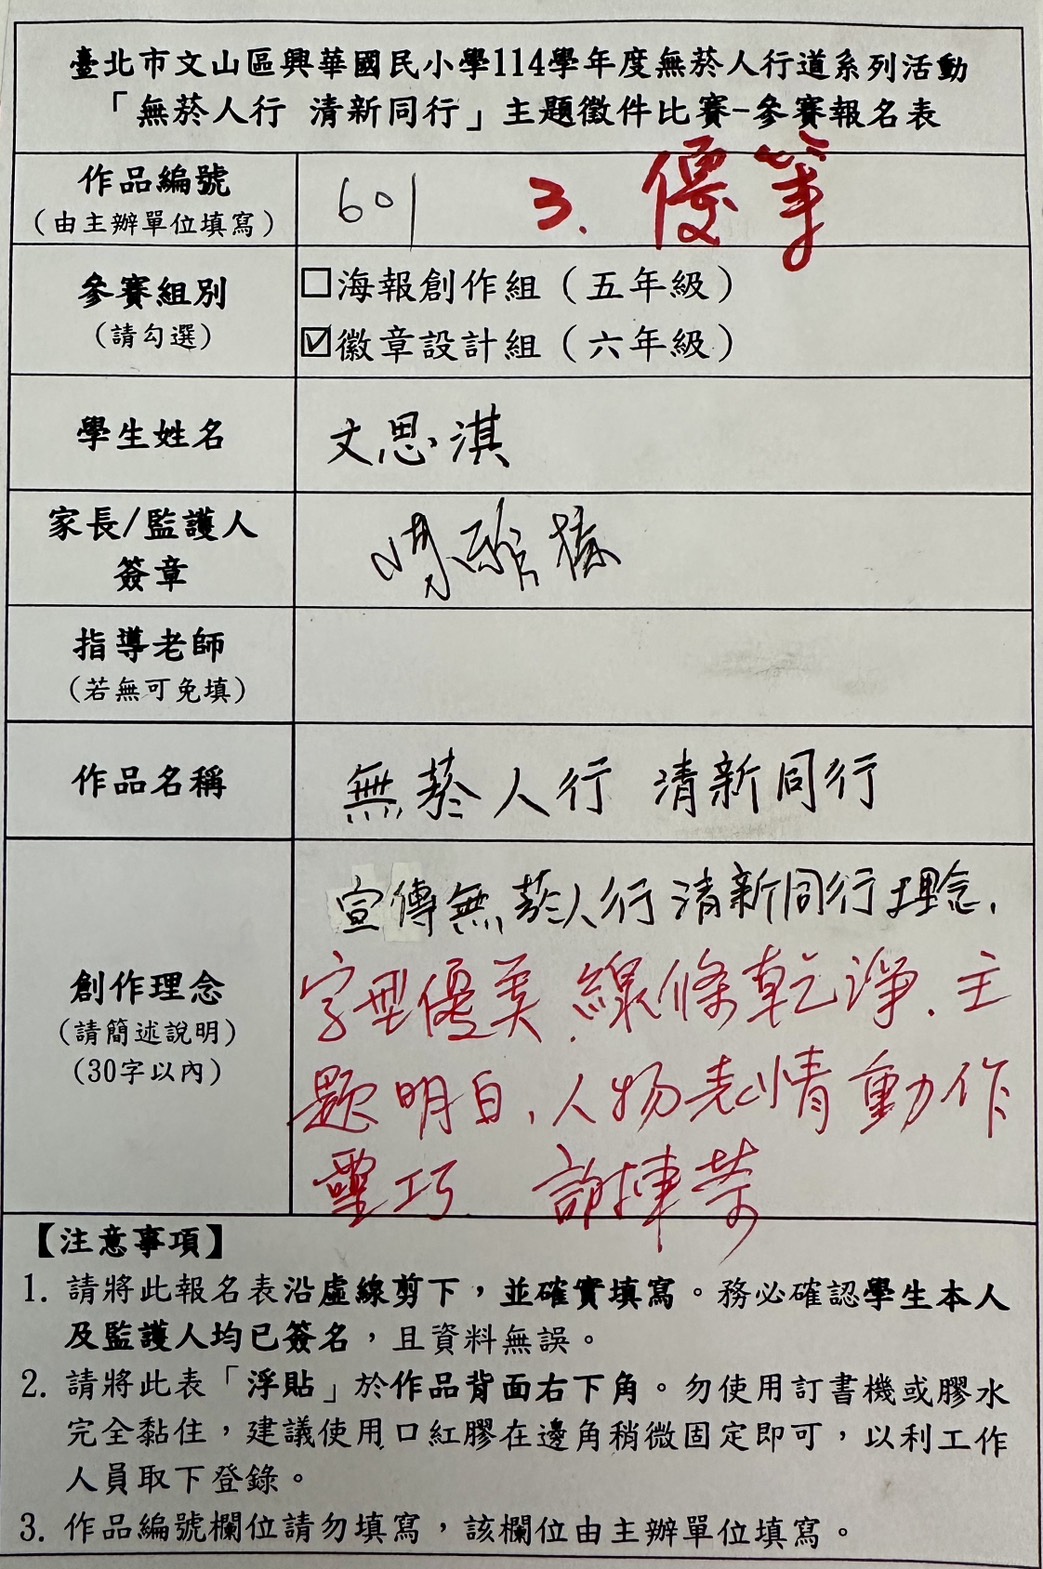 臺北市文山區興華國民小學114學年度無菸人行道系列活動
「無菸人行 清新同行」主題徵件比賽-參賽報名表
作品編號
（由主辦單位填寫）
601 3. 優等
參賽組別
（請勾選）
□海報創作組（五年級）
☑徽章設計組（六年級）
學生姓名
文思淇
家長/監護人
簽章
指導老師
（若無可免填）
作品名稱
無菸人行 清新同行
創作理念
（請簡述說明）
（30字以內）
宣傳無菸人行清新同行理念，
字型優美，線條乾淨，主
題明白，人物表情動作
靈巧
【注意事項】
1. 請將此報名表沿虛線剪下，並確實填寫。務必確認學生本人
及監護人均已簽名，且資料無誤。
2. 請將此表「浮貼」於作品背面右下角。勿使用訂書機或膠水
完全黏住，建議使用口紅膠在邊角稍微固定即可，以利工作
人員取下登錄。
3. 作品編號欄位請勿填寫，該欄位由主辦單位填寫。